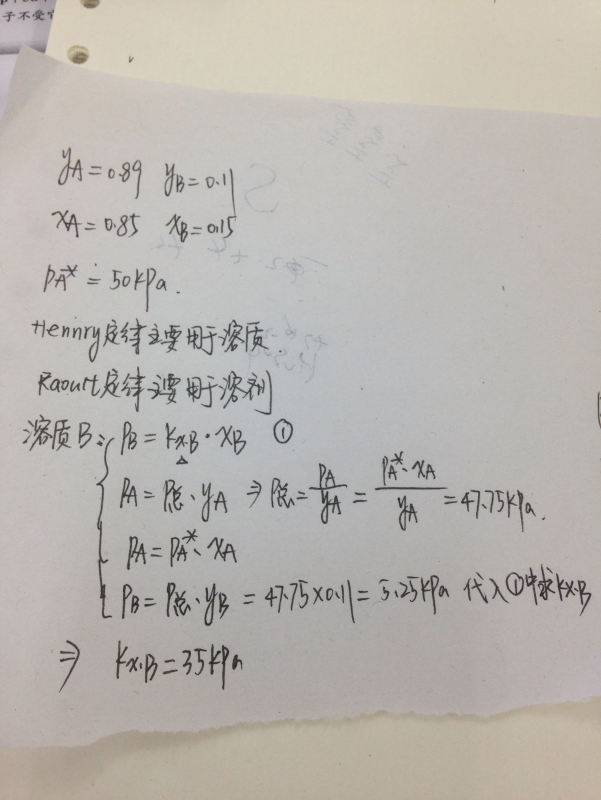 子不受它
yA=0.89 yB=0.11
xA=0.85 xB=0.15
PA*=50kPa.
Hennry定律主要用于溶质.
Raourt定律主要用于溶剂
溶质B: PB=Kx.B·xB ①
PA=P总·yA ⇒ P总=PA/yA=PA*·xA/yA=47.75kPa.
PA=PA*·xA
PB=P总·yB=47.75×0.11=5.25kPa 代入①中求Kx.B
⇒ Kx.B=35kPa